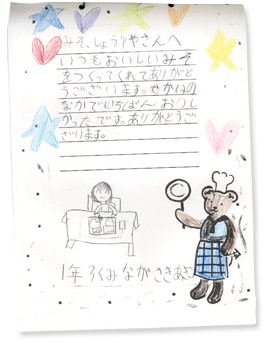 みそ、しょうゆやさんへ
いつもおいしいみそ
をつくってくれてありがと
うございます。せかいの
なかでいちばんお〇し
かったです。ありがとうご
ざいます。
1年ろくみながさきあき